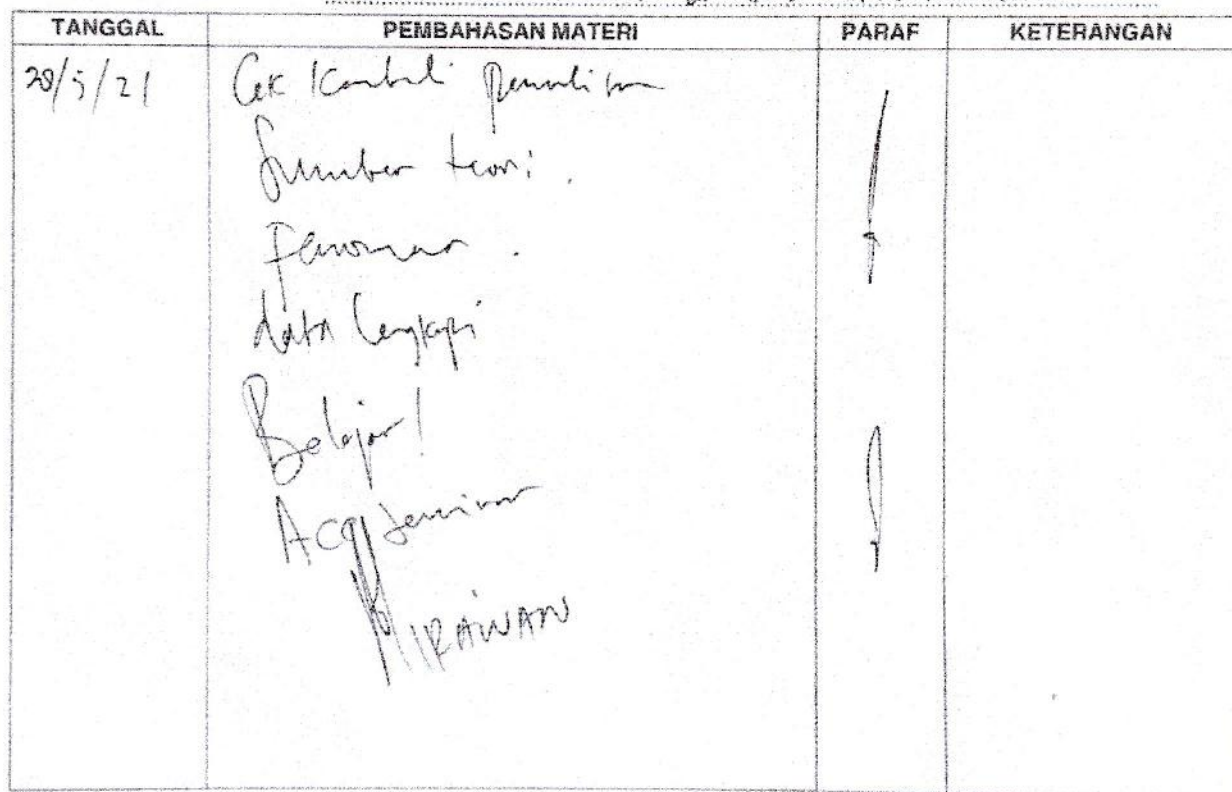 TANGGAL PEMBAHASAN MATERI PARAF KETERANGAN
28/5/21 Cek Kembali Penulisan
Sumber teori.
Fenomena.
data lengkapi
Belajar!
Acc Seminar
IRAWAN